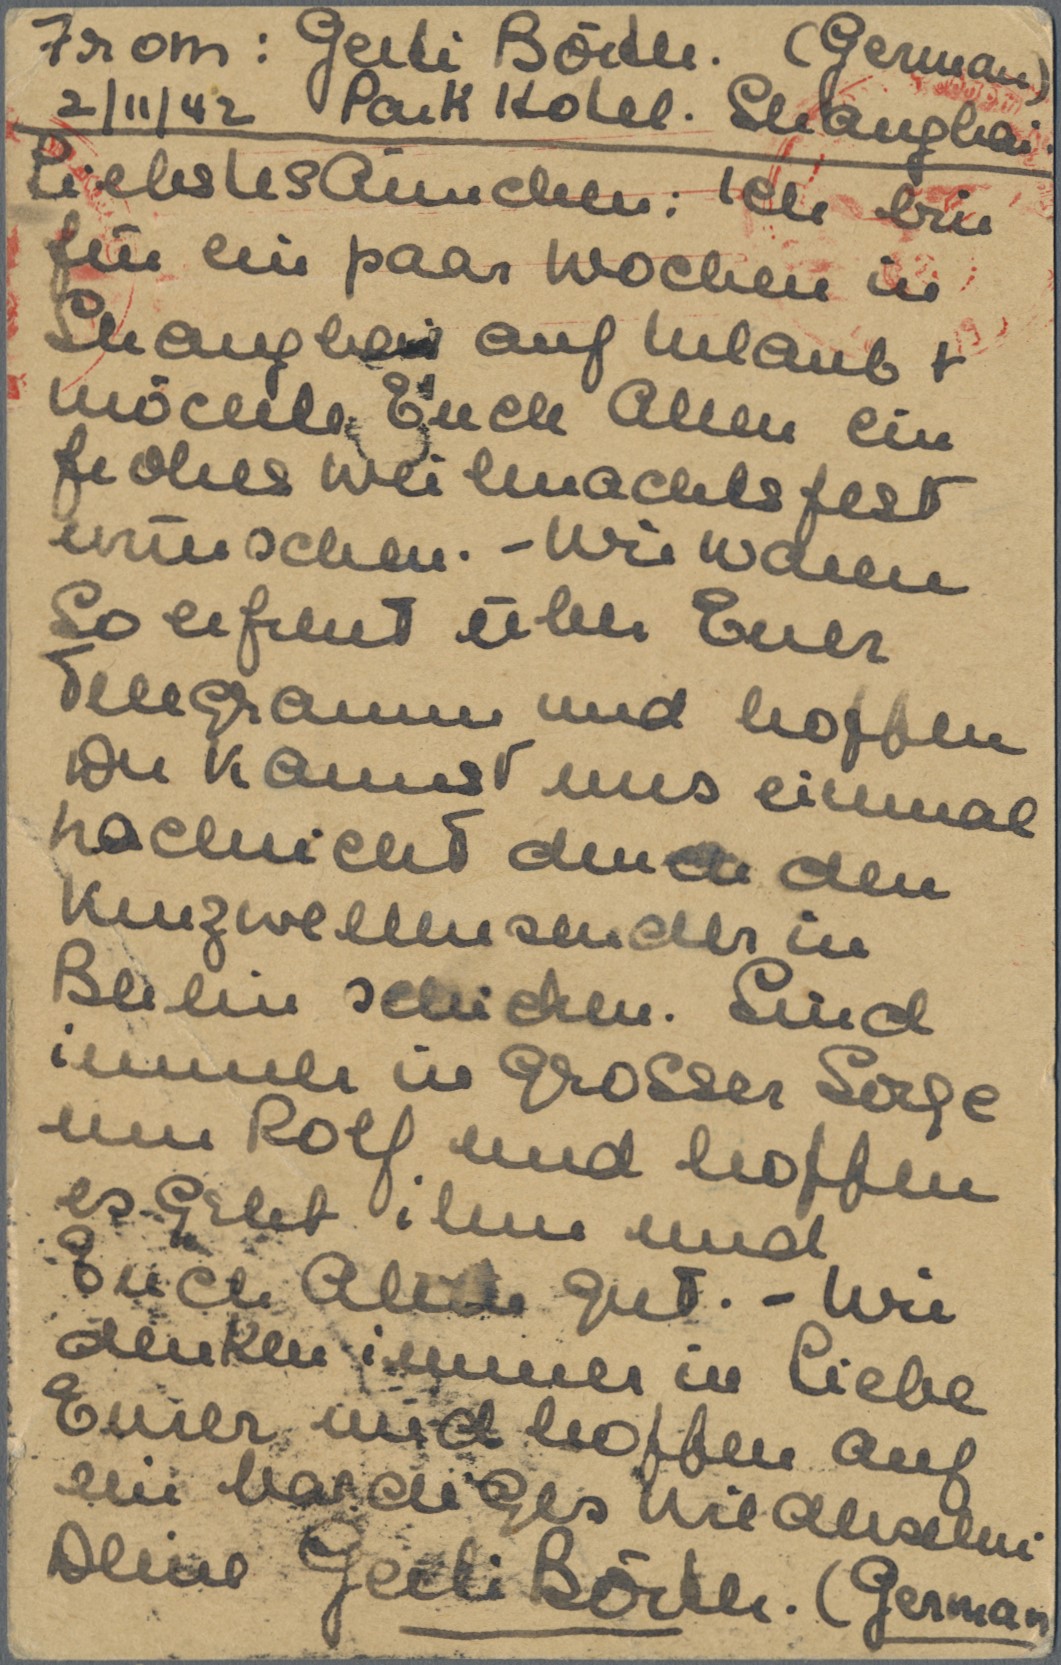 From: Gerti Börder. (German)
2/11/42 Park Hotel. Shanghai.
Liebstes Ännchen: Ich bin
für ein paar Wochen in
Shanghai auf Urlaub +
möchte Euch Allen ein
frohes Weihnachtsfest
wünschen. - Wir waren
So erfreut über Euer
Telegramm und hoffen
Du kannst uns einmal
nachricht durch den
Kurzwellensender in
Berlin schicken. Sind
immer in grosser Sorge
um Rolf und hoffen
es geht ihm und
Euch Allen gut. - Wir
denken immer in Liebe
Eurer und hoffen auf
ein Wiedersehn
Deine Gerti Börder. (German